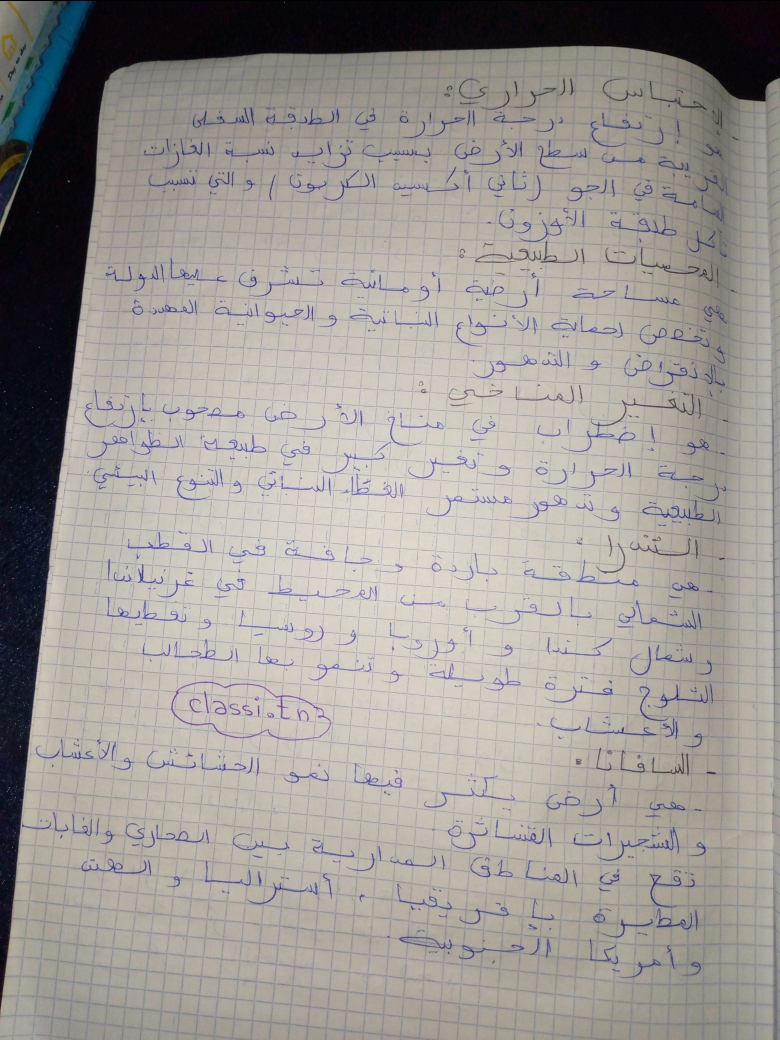 - الإحتباس الحراري:
هو إرتفاع درجة الحرارة في الطبقة السفلى
القريبة من سطح الأرض بسبب تزايد نسبة الغازات
السامة في الجو (ثاني أكسيد الكربون) والتي تسبب
تآكل طبقة الأوزون.
- المحميات الطبيعية:
هي مساحة أرضية أو مائية تشرف عليها الدولة
وتخصص لحماية الأنواع النباتية والحيوانية المهددة
بالانقراض و التدهور.
- التغير المناخي:
- هو إضطراب في مناخ الأرض مصحوب بإرتفاع
درجة الحرارة وتغير كبير في طبيعة الظواهر
الطبيعية وتدهور مستمر الغطاء النباتي والتنوع البيئي
- التندرا:
- هي منطقة باردة وجافة في القطب
الشمالي بالقرب من المحيط في غرنيلاندا
وشمال كندا و أوروبا و روسيا وتغطيها
الثلوج فترة طويلة وتنمو بها الطحالب
والأعشاب.
classi.En3
- السافانا:
- هي أرض يكثر فيها نمو الحشائش والأعشاب
والشجيرات
تقع في المناطق المدارية بين الصحاري والغابات
المطيرة بإفريقيا، أستراليا و الهند
وأمريكا الجنوبية.